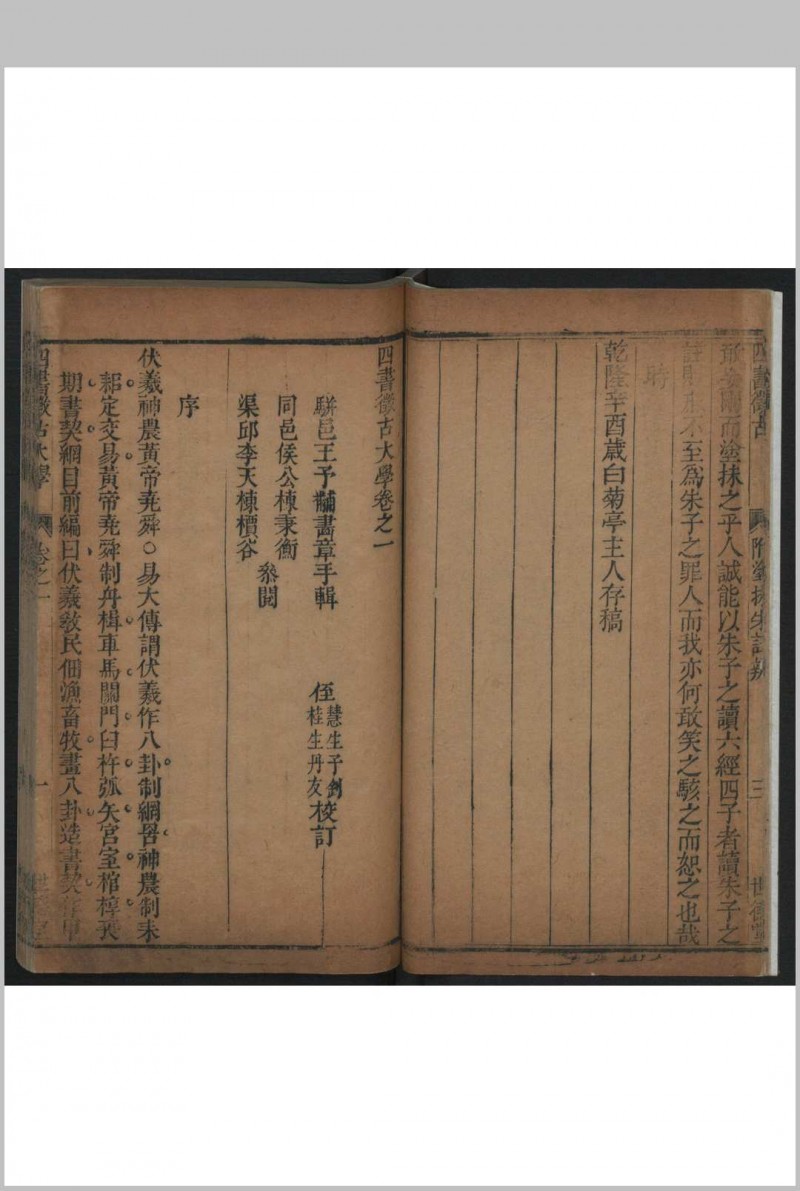 四書徵古 附塗抹朱註辨 三 世德堂
而塗抹之乎人誠能以朱子之讀六經四子者讀朱子之
註則 不至爲朱子之罪人而我亦何敢笑之駭之而恕之也哉
時
乾隆辛酉歲白菊亭主人存稿
四書徵古大學卷之一
駢邑王予黼畵章手輯
侄
慧生予劍
桂生丹友
校訂
同邑侯公棟秉衡
參閱
渠邱李天棟檟谷
序
伏羲神農黃帝堯舜○易大傳謂伏羲作八卦制網罟神農制耒
耜定交易黃帝堯舜制舟楫車馬關門臼杵弧矢宮室棺椁喪
期書契綱目前編曰伏羲敎民佃漁畜牧畫八卦造書契作甲
四書徵古大學 卷之一 一 世德堂